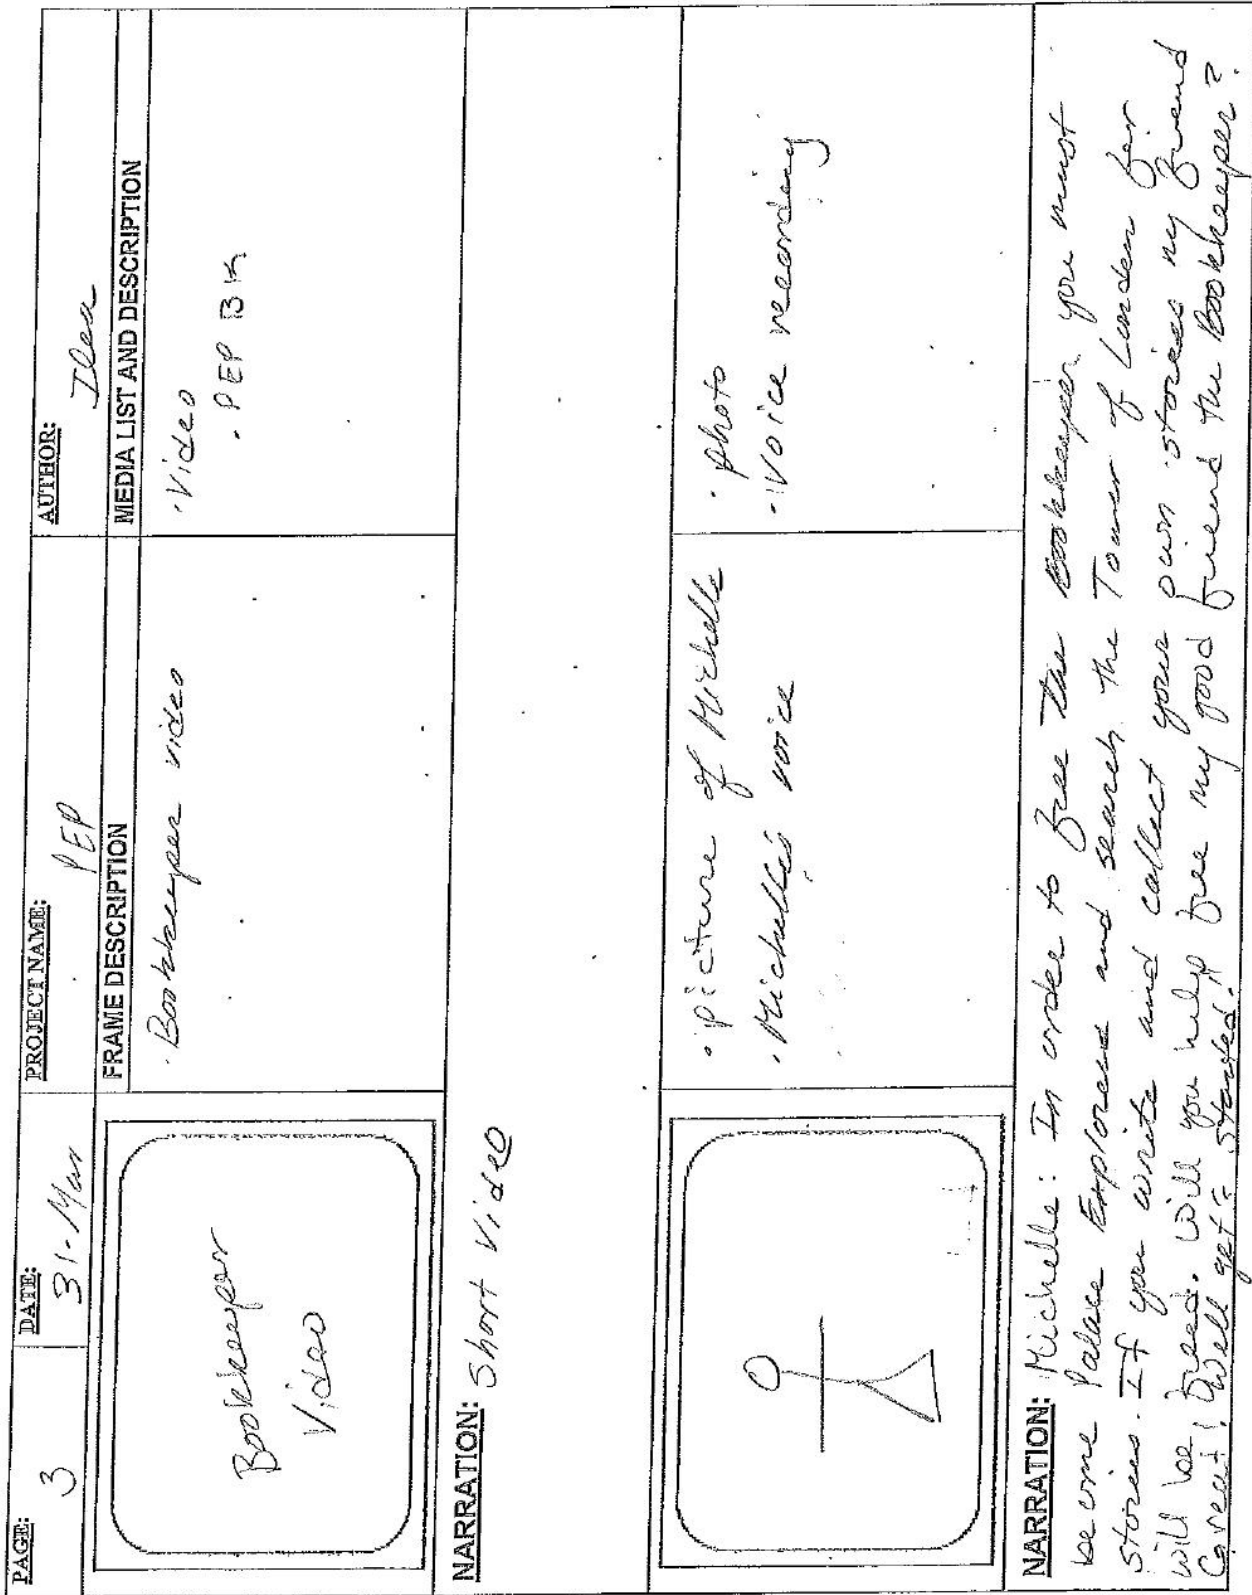 PAGE: 3
DATE: 31-Mar
PROJECT NAME: PEP
AUTHOR: Ilea
FRAME DESCRIPTION
MEDIA LIST AND DESCRIPTION
Bookkeeper
Video
· Bookkeeper video
· Video
· PEP BK
NARRATION: Short Video
· picture of Michelle
· Michelle's voice
· photo
· Voice recording
NARRATION: Michelle: In order to free the Bookkeeper you must
become Palace Explorers and search the Tower of London for
stories. If you write and collect your own stories my friend
will be freed. Will you help free my good friend the Bookkeeper?
Great! We'll get started!